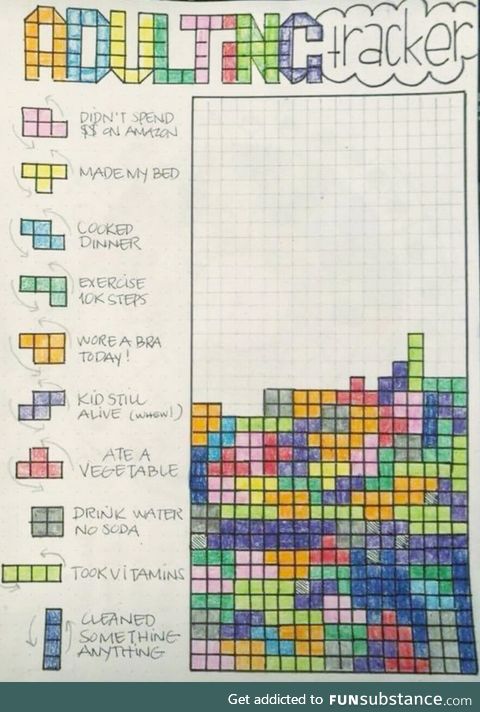 ADULTING tracker
DIDN'T SPEND
$$ ON AMAZON
MADE MY BED
COOKED
DINNER
EXERCISE
10K STEPS
WORE A BRA
TODAY!
KID STILL
ALIVE (WHEW!)
ATE A
VEGETABLE
DRINK WATER
NO SODA
TOOK VITAMINS
CLEANED
SOMETHING
ANYTHING
Get addicted to FUNsubstance.com